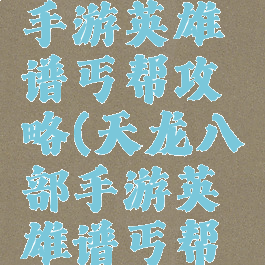 手游英雄
谱丐帮攻
略(天龙八
部手游英
雄谱丐帮